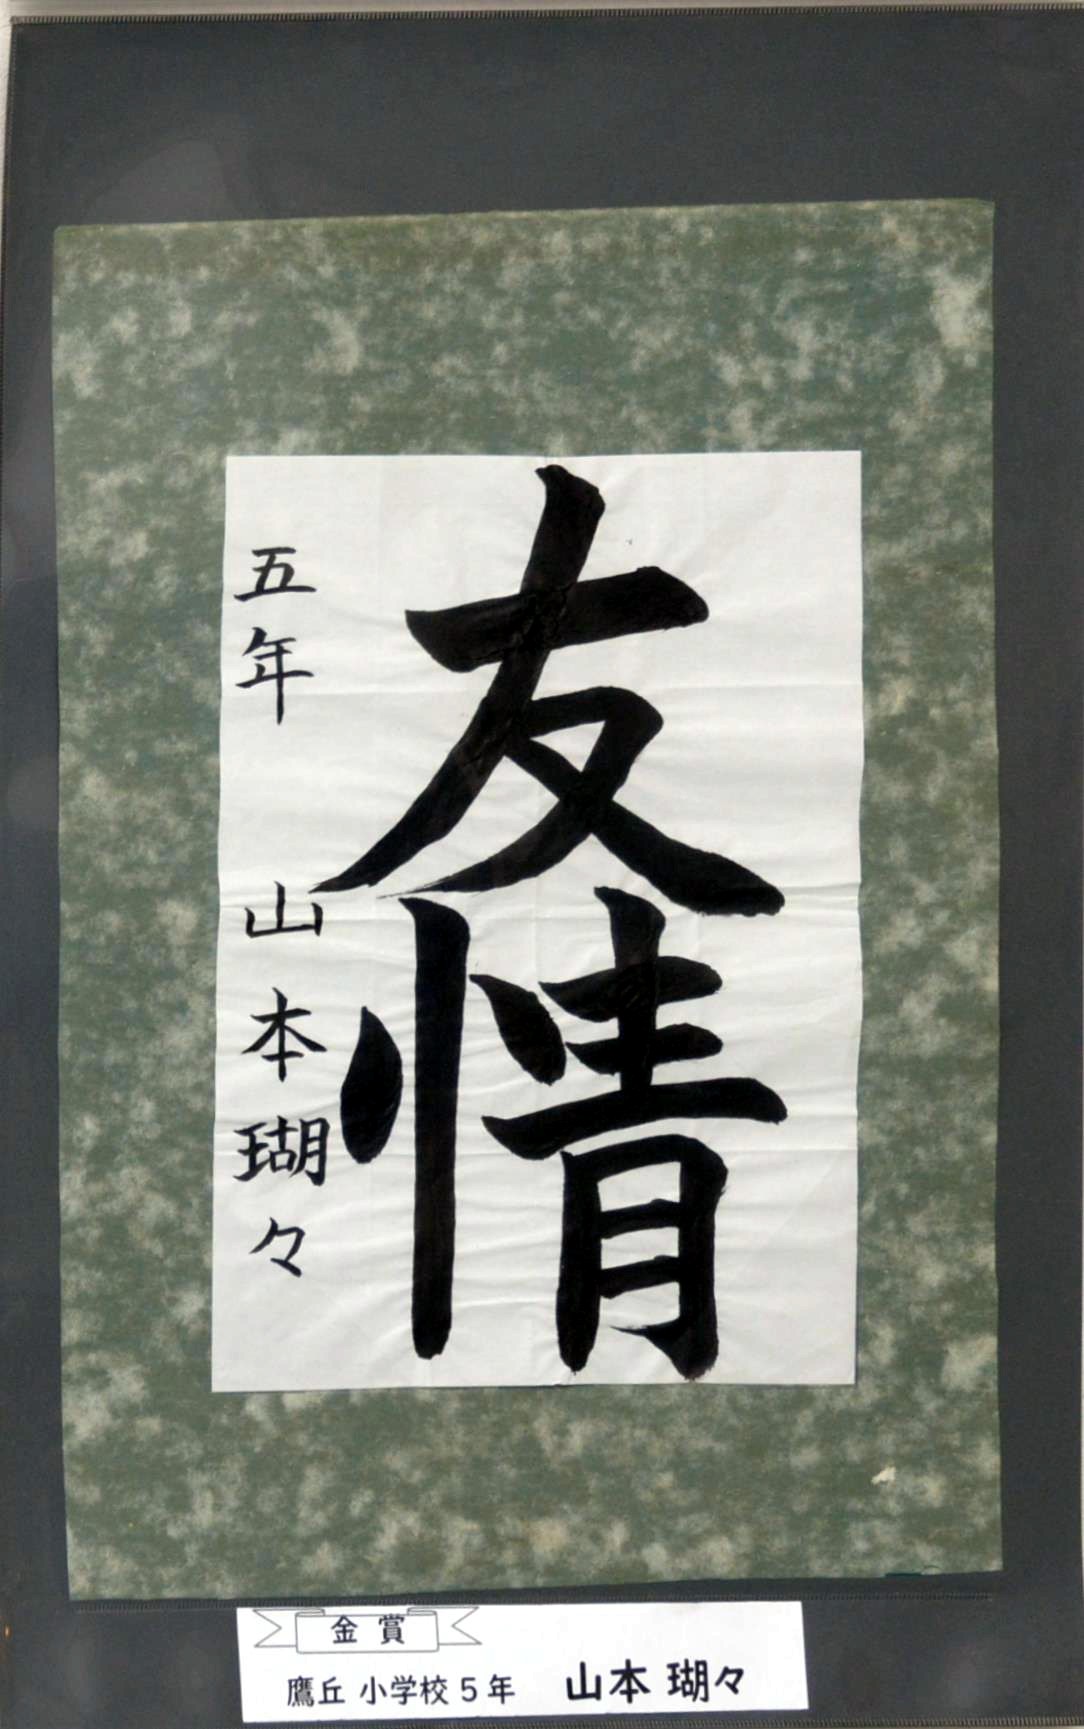 友情
五年 山本瑚々
金賞
鷹丘 小学校 5年 山本 瑚々